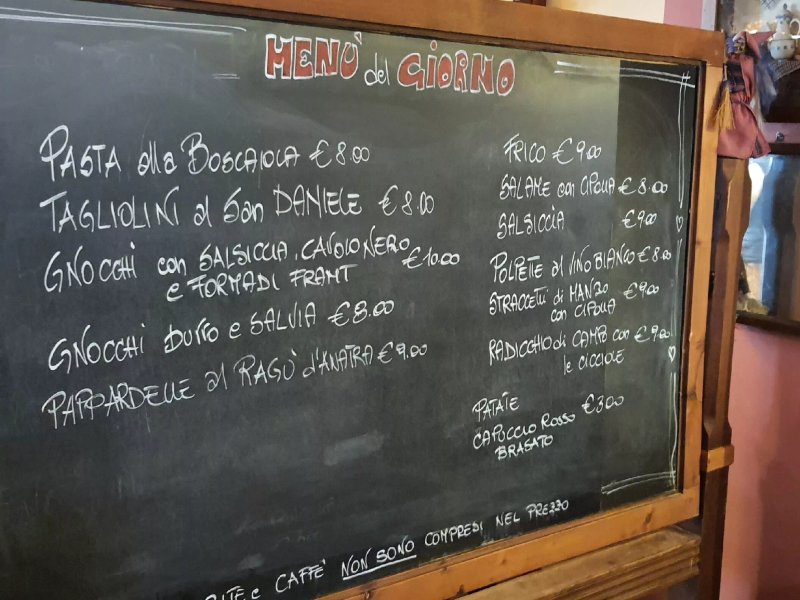 MENÙ del GIORNO
PASTA alla BOSCAIOLA €8.00
TAGLIOLINI al San DANIELE €8.00
GNOCCHI con SALSICCIA, CAVOLO NERO
e FORMADI FRANT €10.00
GNOCCHI BURRO e SALVIA €8.00
PAPPARDELLE al RAGÙ d'ANATRA €9.00
FRICO €9.00
SALAME con CIPOLLA €8.00
SALSICCIA €9.00
POLPETTE al VINO BIANCO €8.00
STRACCETTI di MANZO €9.00
con CIPOLLA
RADICCHIO di CAMPO con €9.00
le CICCIOLE
PATATE
CAPUCCIO ROSSO €3.00
BRASATO
CAFFE' NON SONO COMPREDI NEL PREZZO